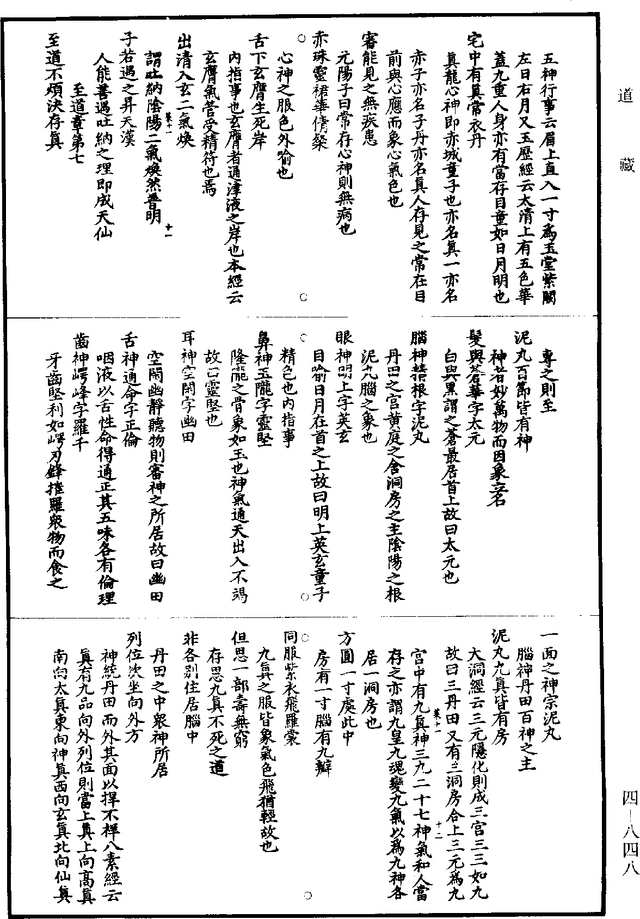 道藏
五神行事云眉上直入一寸為玉堂紫闕
左日右月又玉歷經云太清上有五色華
蓋九重人身亦有當存目童如日月明也
宅中有真常衣丹
真龍心神即赤城童子也亦名真一亦名
赤子亦名子丹亦名真人存見之常在目
前與心應而象心氣色也
審能見之無疾患
元陽子曰常存心神則無病也
赤珠靈裙華蒨粲
心神之服色外喻也
舌下玄膺生死岸
内指事也玄膺者通津液之岸也本經云
玄膺氣管受精符也焉
出清入玄二氣煥
謂吐納陰陽二氣煥然普明
子若遇之昇天漢
人能善遇吐納之理即成天仙
至道章第七
至道不煩決存真
專之則至
泥丸百節皆有神
神者妙萬物而因象立名
髮與蒼華字太元
白與黑謂之蒼最居首上故曰太元也
腦神精根字泥丸
丹田之宮黃庭之舍洞房之主陰陽之根
泥丸腦之象也
眼神明上字英玄
目喻日月在首之上故曰明上英玄童子
精色也内指事
鼻神玉壠字靈堅
隆壠之骨象如玉也神氣通天出入不竭
故曰靈堅也
耳神空閑字幽田
空閑幽靜聽物則審神之所居故曰幽田
舌神通命字正倫
咽液以舌性命得通正其五味各有倫理
齒神崿峰字羅千
牙齒堅利如崿刃鋒摧羅衆物而食之
一面之神宗泥丸
腦神丹田百神之主
泥丸九真皆有房
大洞經云三元隱化則成三宮三三如九
故曰三丹田又有三洞房合上三元為九
宮中有九真神三九二十七神氣和人當
存之亦謂九皇九魂變九氣以為九神各
居一洞房也
方圓一寸處此中
房有一寸腦有九瓣
同服紫衣飛羅裳
九真之服皆象氣色飛猶輕故也
但思一部壽無窮
存思九真不死之道
非各别住居腦中
丹田之中衆神所居
列位次坐向外方
神統丹田而外其面以捍不祥八素經云
真有九品向外列位則當上真上向高真
南向太真東向神真西向玄真北向仙真
四—八四八